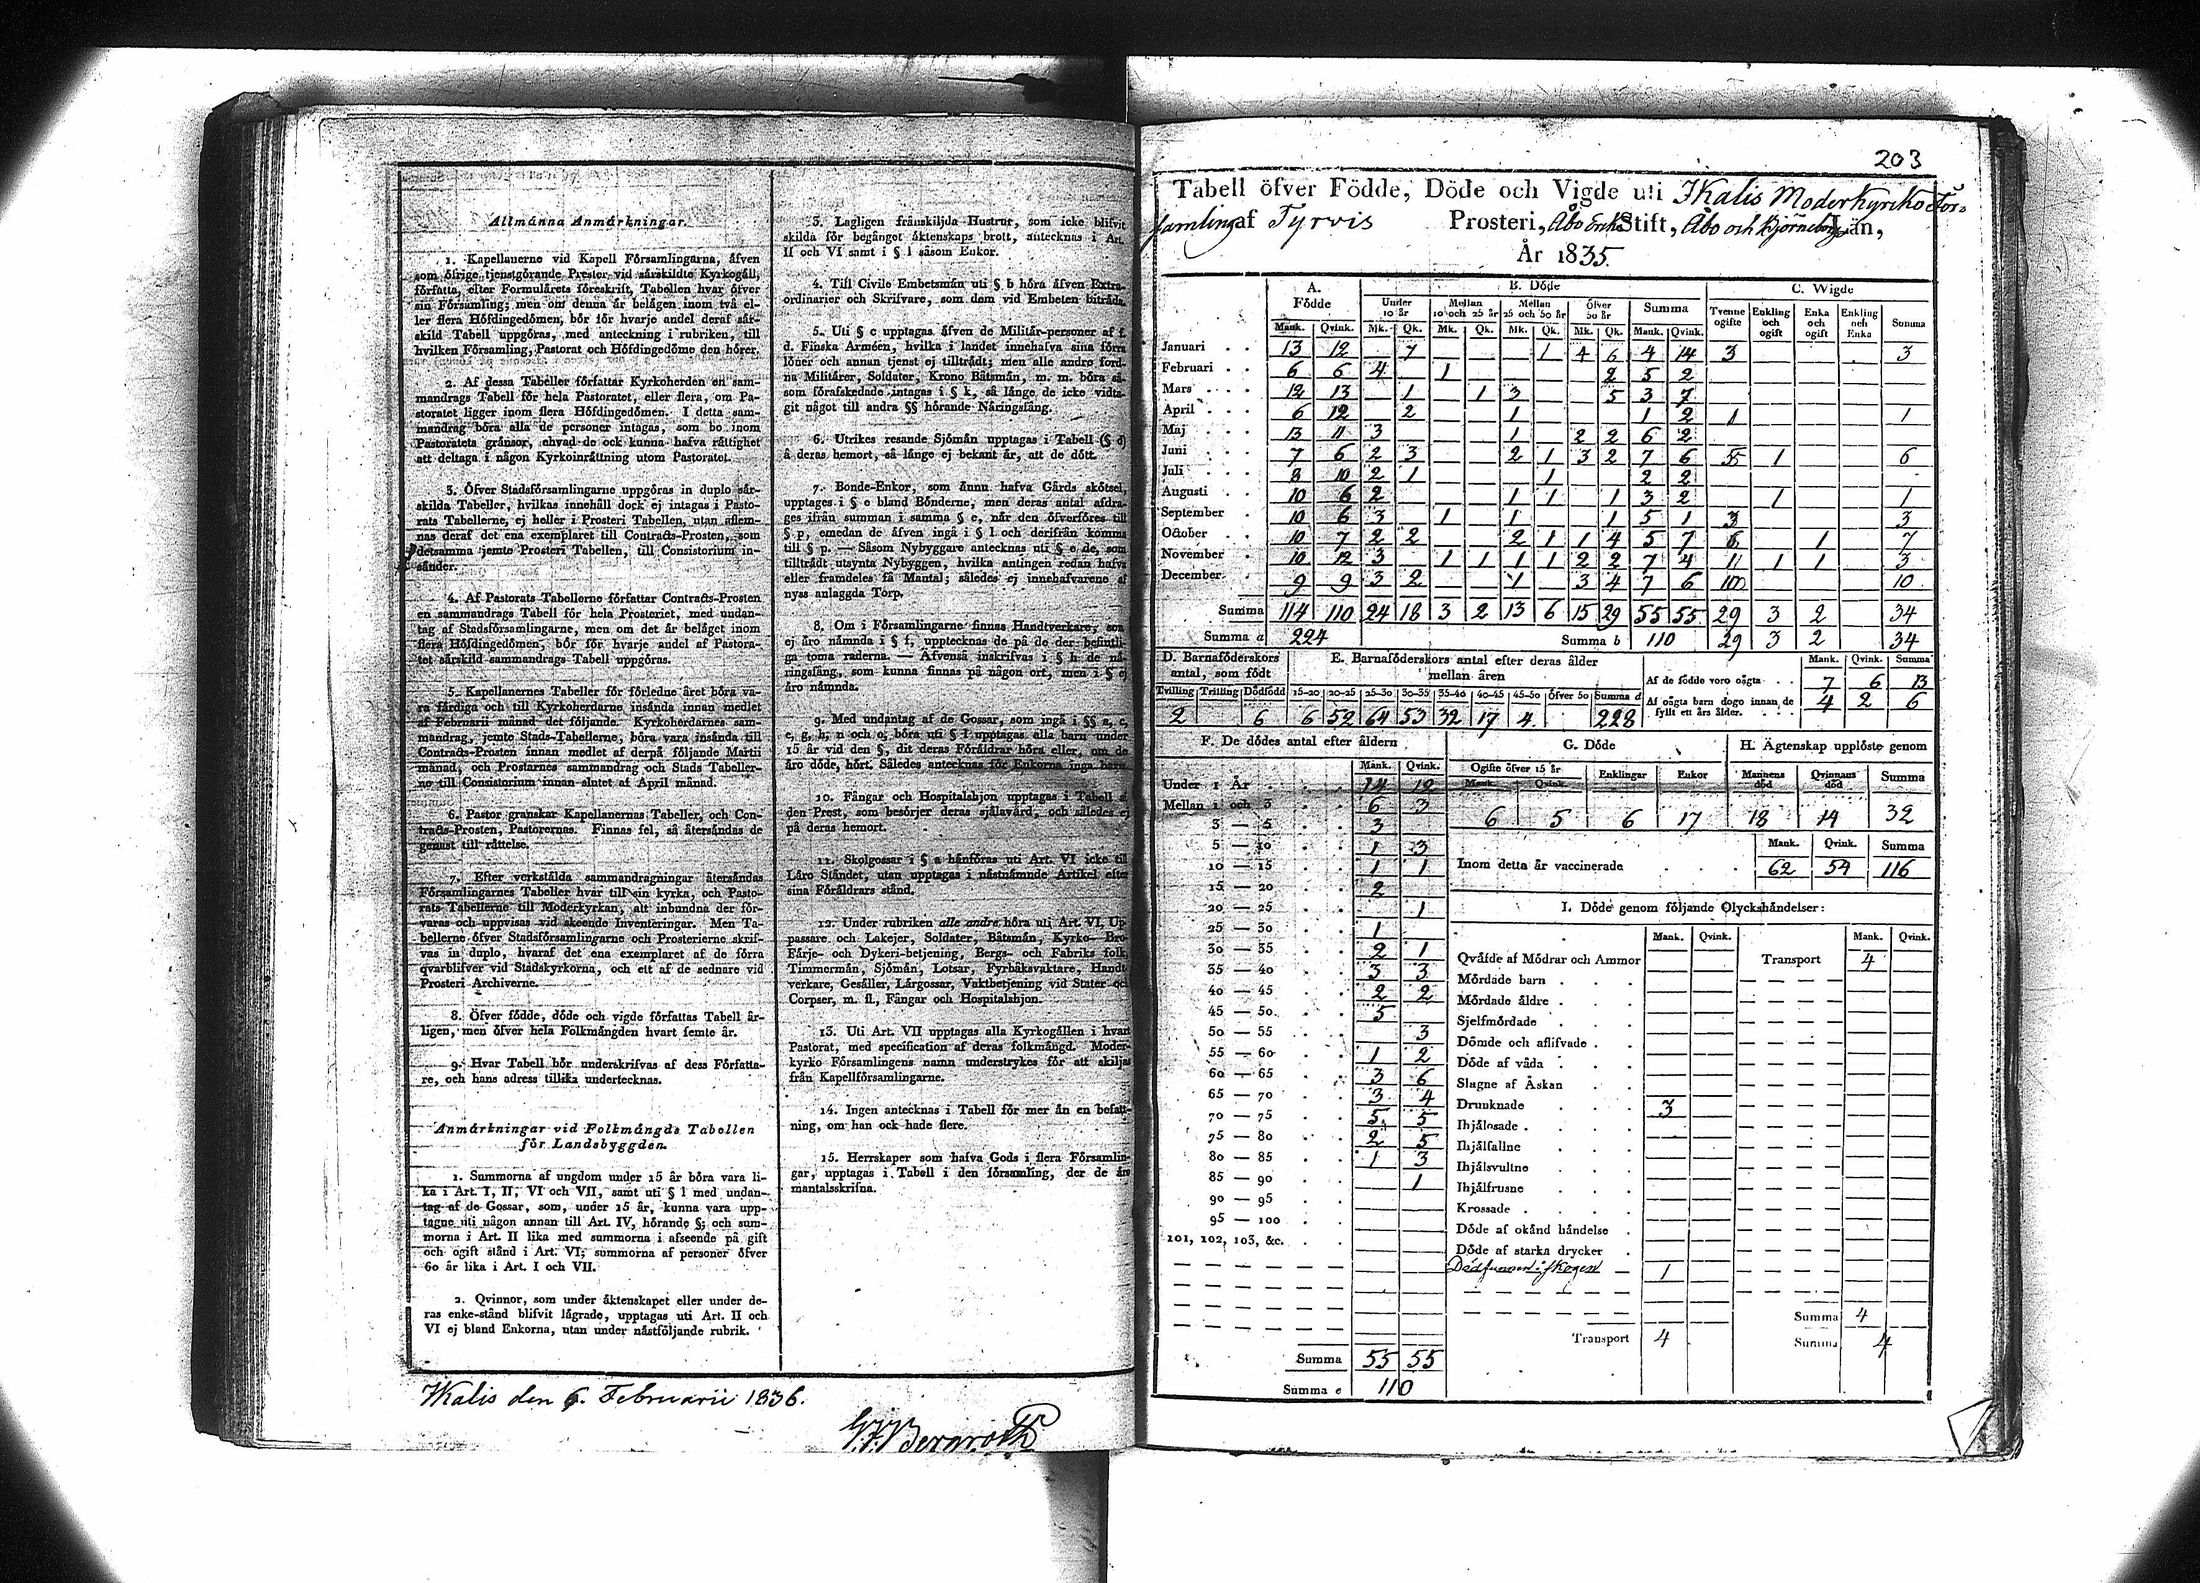 Allmänna Anmärkningar.
1. Kapellanerne vid Kapell Församlingarna, äfven
som öfrige tjenstgörande Prester vid särskildte Kyrkogäll,
författa, efter Formulärets föreskrift, Tabellen hvar öfver
sin Församling; men om denna är belägen inom två el-
ler flera Höfdingedömen, bör för hvarje andel deraf sär-
skild Tabell uppgöras, med anteckning i rubriken, till
hvilken Församling, Pastorat och Höfdingedöme den hörer.
2. Af dessa Tabeller författar Kyrkoherden en sam-
mandrags Tabell för hela Pastoratet, eller flera, om Pa-
storatet ligger inom flera Höfdingedömen. I detta sam-
mandrag böra alla de personer intagas, som bo inom
Pastoratets gränsor, ehvad de ock kunna hafva rättighet
att deltaga i någon Kyrkoinrättning utom Pastoratet.
3. Öfver Stadsförsamlingarne uppgöras in duplo sär-
skilda Tabeller, hvilkas innehåll dock ej intagas i Pasto-
rats Tabellerne, ej heller i Prosteri Tabellen, utan aflem-
nas deraf det ena exemplaret till Contracts-Prosten, som
detsamma jemte Prosteri Tabellen, till Consistorium in-
sänder.
4. Af Pastorats Tabellerne författar Contracts-Prosten
en sammandrags Tabell för hela Prosteriet, med undan-
tag af Stadsförsamlingarne, men om det är beläget inom
flera Höfdingedömen, bör för hvarje andel af Pastora-
tet särskild sammandrags Tabell uppgöras.
5. Kapellanernes Tabeller för förledne året böra va-
ra färdiga och till Kyrkoherdarne insända innan medlet
af Februarii månad det följande. Kyrkoherdarnes sam-
mandrag, jemte Stads-Tabellerne, böra vara insända till
Contracts-Prosten innan medlet af derpå följande Martii
månad, och Prostarnes sammandrag och Stads Tabeller-
ne till Consistorium innan slutet af April månad.
6. Pastor granskar Kapellanernas Tabeller, och Con-
tracts-Prosten, Pastorernas. Finnas fel, så återsändas de
genast till rättelse.
7. Efter verkställda sammandragningar återsändas
Församlingarnes Tabeller hvar till sin kyrka, och Pasto-
rats Tabellerne till Moderkyrkan, alt inbundna der för-
varas och uppvisas vid skeende Inventeringar. Men Ta-
bellerne öfver Stadsförsamlingarne och Prosterierne skrif-
vas in duplo, hvaraf det ena exemplaret af de förra
qvarblifver vid Stadskyrkorna, och ett af de sednare vid
Prosteri Archiverne.
8. Öfver födde, döde och vigde författas Tabell år-
ligen, men öfver hela Folkmängden hvart femte år.
9. Hvar Tabell bör underskrifvas af dess Författa-
re, och hans adress tillika undertecknas.
Anmärkningar vid Folkmängds Tabellen
för Landsbyggden.
1. Summorna af ungdom under 15 år böra vara li-
ka i Art. I, II, VI och VII, samt uti § l med undan-
tag af de Gossar, som, under 15 år, kunna vara upp-
tagne uti någon annan till Art. IV, hörande §; och sum-
morna i Art. II lika med summorna i afseende på gift
och ogift stånd i Art. VI; summorna af personer öfver
60 år lika i Art. I och VII.
2. Qvinnor, som under äktenskapet eller under de-
ras enke-stånd blifvit lägrade, upptagas uti Art. II och
VI ej bland Enkorna, utan under nästföljande rubrik.
3. Lagligen frånskiljda Hustrur, som icke blifvit
skilda för begånget äktenskaps brott, antecknas i Art.
II och VI samt i § l såsom Enkor.
4. Till Civile Embetsmän uti § b höra äfven Extra-
ordinarier och Skrifvare, som dem vid Embeten biträda.
5. Uti § c upptagas äfven de Militär-personer af f.
d. Finska Arméen, hvilka i landet innehafva sina förra
löner och annan tjenst ej tillträdt; men alle andre ford-
na Militärer, Soldater, Krono Båtsmän, m. m. böra så-
som förafskedade intagas i § k, så länge de icke vidta-
git något till andra §§ hörande Näringsfång.
6. Utrikes resande Sjömän upptagas i Tabell (§ d)
å deras hemort, så länge ej bekant är, att de dött.
7. Bonde-Enkor, som ännu hafva Gårds skötsel,
upptages i § e bland Bönderne, men deras antal afdra-
ges ifrån summan i samma § e, när den öfverföres till
§ p, emedan de äfven ingå i § l och derifrån komma
till § p. — Såsom Nybyggare antecknas uti § e de, som
tillträdt utsynta Nybyggen, hvilka antingen redan hafva
eller framdeles få Mantal; således ej innehafvarene af
nyss anlaggda Torp.
8. Om i Församlingarne finnas Handtverkare, som
ej äro nämnda i § f, upptecknas de på de der befintli-
ga toma raderna. — Äfvenså inskrifvas i § h de nä-
ringsfång, som kunna finnas på någon ort, men i § ej
äro nämnda.
9. Med undantag af de Gossar, som ingå i §§ a, c,
e, g, h, n och o, böra uti § l upptagas alla barn under
15 år vid den §, dit deras Föräldrar höra eller, om de
äro döde, hört. Således antecknas för Enkorna inga barn.
10. Fångar och Hospitalshjon upptagas i Tabell af
den Prest, som besörjer deras själavård, och således ej
på deras hemort.
11. Skolgossar i § a hänföras uti Art. VI icke till
Läro Ståndet, utan upptagas i nästnämnde Artikel efter
sina Föräldrars stånd.
12. Under rubriken alle andre höra uti Art. VI, Up-
passare och Lakejer, Soldater, Båtsmän, Kyrko- Bro-
Färje- och Dykeri-betjening, Bergs- och Fabriks folk,
Timmermän, Sjömän, Lotsar, Fyrbåksvaktare, Handt-
verkare, Gesäller, Lärgossar, Vaktbetjening vid Stater och
Corpser, m. fl., Fångar och Hospitalshjon.
13. Uti Art. VII upptagas alla Kyrkogällen i hvart
Pastorat, med specification af deras folkmängd. Moder-
kyrko Församlingens namn understrykes för att skiljas
från Kapellförsamlingarne.
14. Ingen antecknas i Tabell för mer än en befatt-
ning, om han ock hade flere.
15. Herrskaper som hafva Gods i flera Församlin-
gar, upptagas i Tabell i den församling, der de äro
mantalsskrifna.
Ikalis den 6. Februarii 1836.
Bergroth
203
Tabell öfver Födde, Döde och Vigde uti Ikalis Moderkyrko För-
samling af Tyrvis Prosteri, Åbo Erke Stift, Åbo och Björneborgs Län,
År 1835.
A. Födde B. Döde C. Wigde
Under 10 år Mellan 10 och 25 år Mellan 25 och 50 år Öfver 50 år Summa Tvenne ogifte Enkling och ogift Enka och ogift Enkling och Enka Summa
Mank. Qvink. Mk. Qk. Mk. Qk. Mk. Qk. Mk. Qk. Mank. Qvink.
Januari 13 12 7 1 4 6 4 14 3 3
Februari 6 6 4 1 2 5 2
Mars 12 13 1 1 3 5 3 7
April 6 12 2 1 1 2 1 1
Maj 13 11 3 1 2 2 6 2
Juni 7 6 2 3 2 1 3 2 7 6 5 1 6
Juli 8 10 2 1 1 2 2
Augusti 10 6 2 1 1 1 3 2 1 1
September 10 6 3 1 1 1 5 1 3 3
October 10 7 2 2 2 1 1 4 5 7 6 1 7
November 10 12 3 1 1 1 1 2 2 7 4 1 1 1 3
December 9 9 3 2 1 3 4 7 6 10 10
Summa 114 110 24 18 3 2 13 6 15 29 55 55 29 3 2 34
Summa a 224 Summa b 110 29 3 2 34
D. Barnaföderskors antal, som födt
Tvilling Trilling Dödfödd
2 6
E. Barnaföderskors antal efter deras ålder mellan åren
15-20 20-25 25-30 30-35 35-40 40-45 45-50 öfver 50 Summa d
6 52 64 53 32 17 4 228
Mank. Qvink. Summa
Af de födde voro oägta 7 6 13
Af oägta barn dogo innan de
fyllt ett års ålder. 4 2 6
F. De dödes antal efter åldern
Mank. Qvink.
Under 1 År 14 12
Mellan 1 och 3 6 3
3 — 5 3
5 — 10 1 3
10 — 15 1 1
15 — 20 2
20 — 25 1
25 — 30 1
30 — 35 2 1
35 — 40 3 3
40 — 45 2 2
45 — 50 5
50 — 55 3
55 — 60 1 2
60 — 65 3 6
65 — 70 3 4
70 — 75 5 5
75 — 80 2 5
80 — 85 1 3
85 — 90 1
90 — 95
95 — 100
101, 102, 103, &c.
Summa 55 55
Summa e 110
G. Döde
Ogifte öfver 15 år Enklingar Enkor
Mank. Qvink.
6 5 6 17
H. Ägtenskap upplöste genom
Mannens död Qvinnans död Summa
18 14 32
Mank. Qvink. Summa
Inom detta år vaccinerade 62 54 116
I. Döde genom följande Olyckshändelser:
Mank. Qvink. Mank. Qvink.
Qväfde af Mödrar och Ammor Transport 4
Mördade barn
Mördade äldre
Sjelfmördade
Dömde och aflifvade
Döde af våda
Slagne af Åskan
Drunknade 3
Ihjälosade
Ihjälfallne
Ihjälsvultne
Ihjälfrusne
Krossade
Döde af okänd händelse
Döde af starka drycker
Dödfunnen i skogen 1
Summa 4
Transport 4 Summa 4